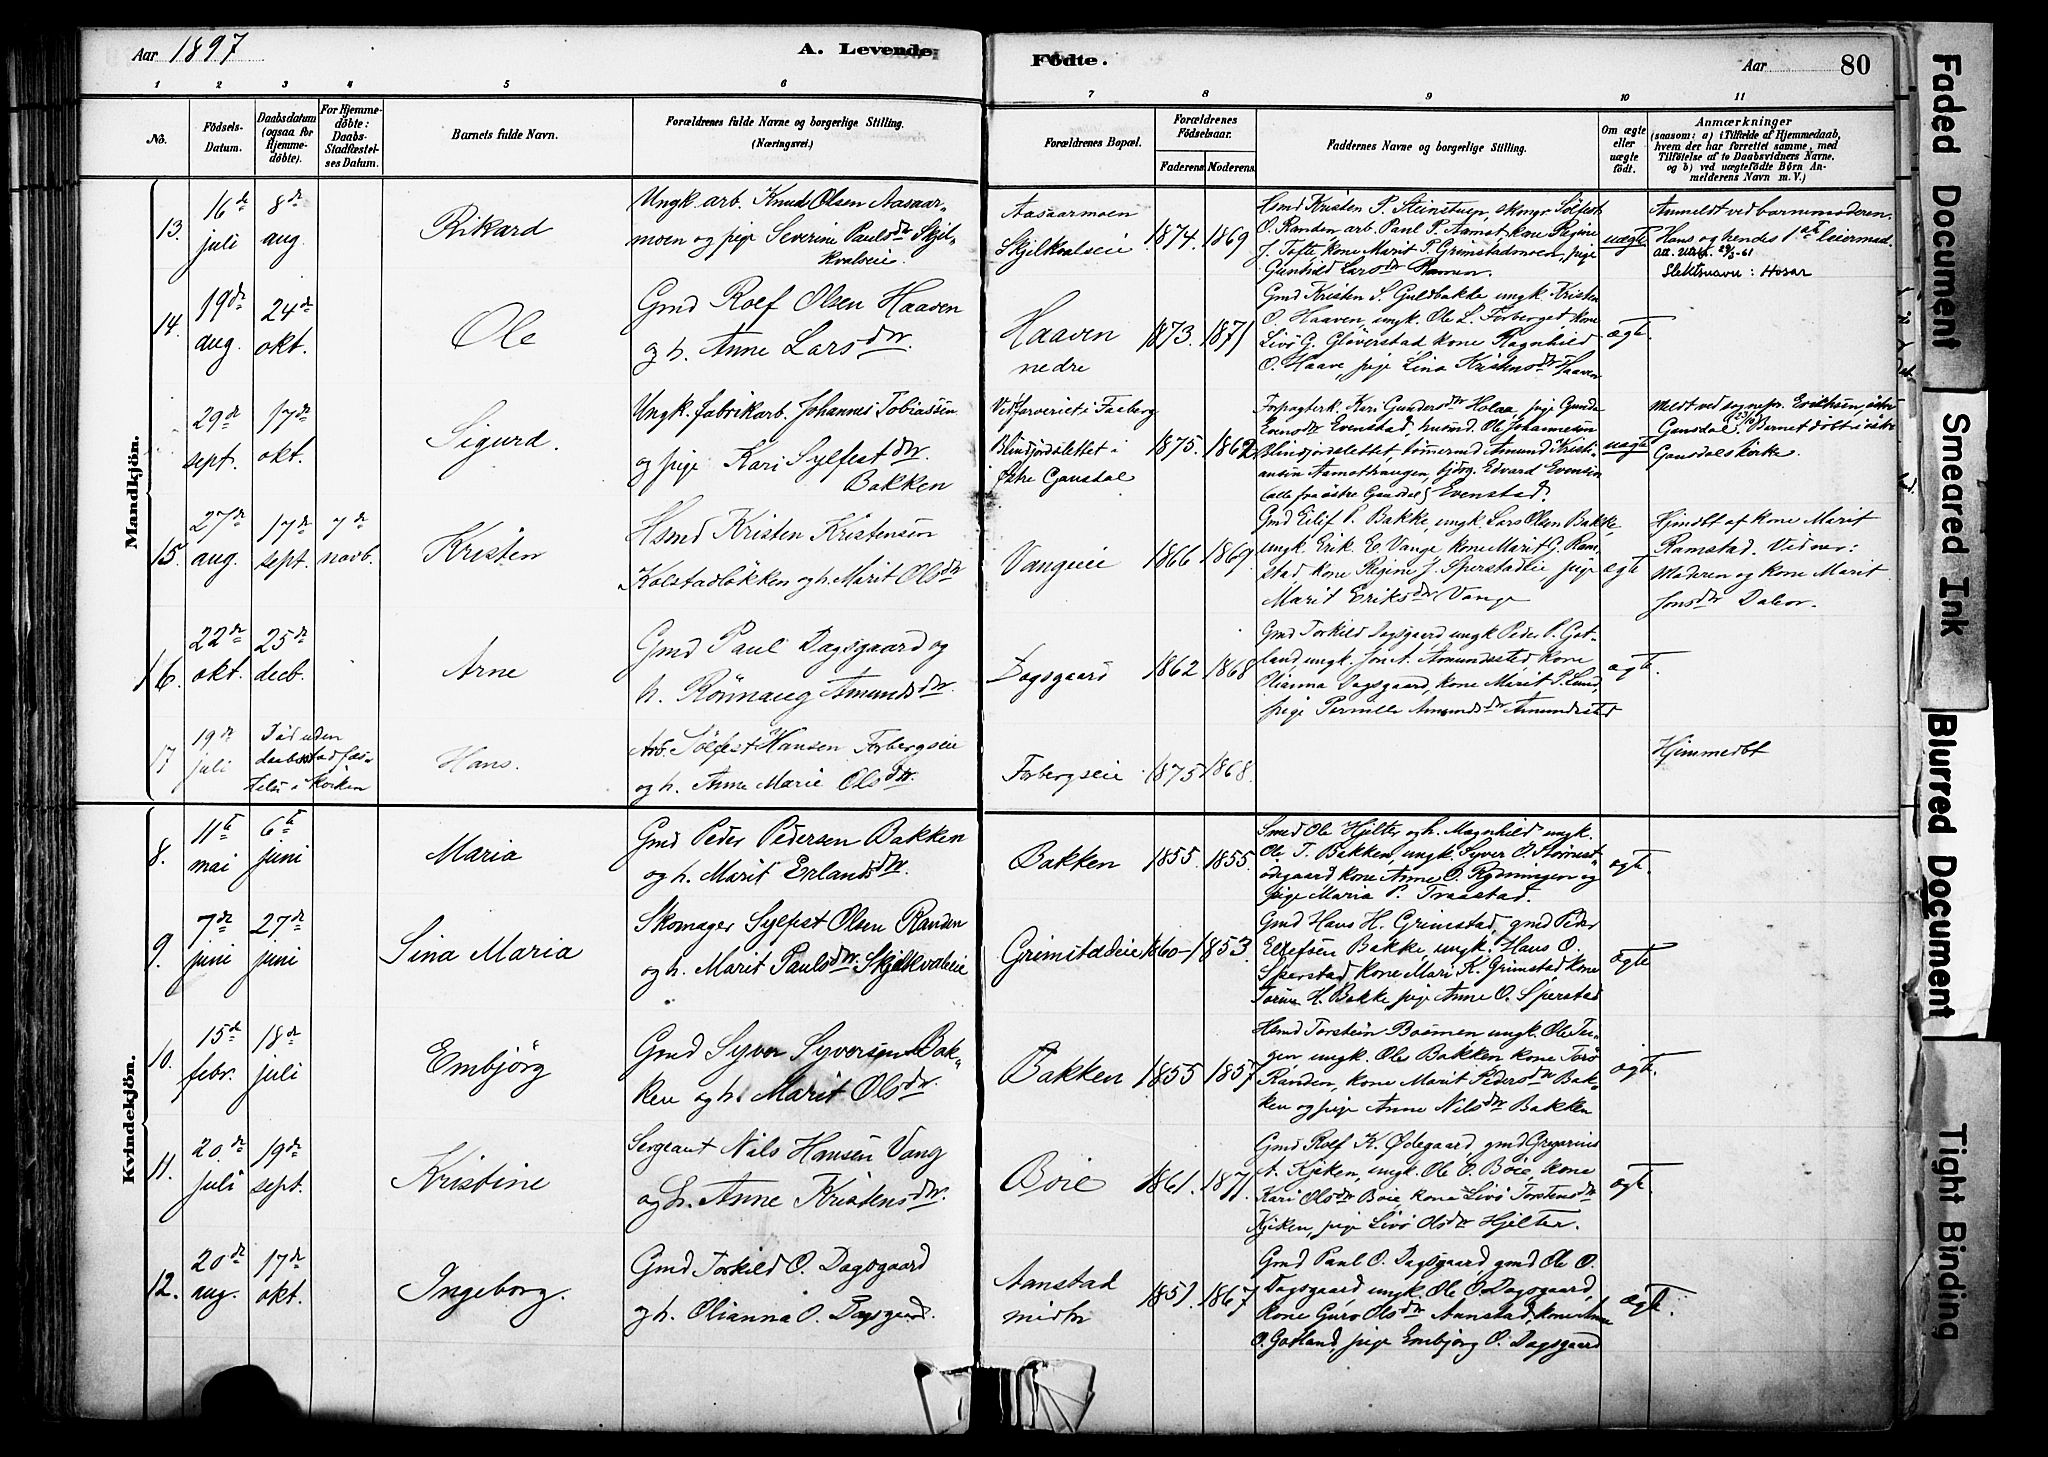 Aar 1897
A. Levende
Fødte.
Aar
80
1 2 3 4 5 6 7 8 9 10 11
No.
Födsels-Datum.
Daabsdatum (ogsaa for Hjemme-döbte).
For Hjemme-döbte: Daabs-Stadfæstel-ses Datum.
Barnets fulde Navn.
Forældrenes fulde Navne og borgerlige Stilling. (Næringsvei.)
Forældrenes Bopæl.
Forældrenes Födselsaar.
Faderens Moderens
Faddernes Navne og borgerlige Stilling.
Om ægte eller uægte födt.
Anmærkninger
(saasom: a) i Tilfælde af Hjemmedaab,
hvem der har forrettet samme, med
Tilföielse af to Daabsvidners Navne.
og b) ved uægtefödte Börn An-
melderens Navn m. V.)
Mandkjön.
13.
16de juli
8de aug.
Rikard
Ungk. arb. Knud Olsen Aasaar-
moen og pige Severine Paulsdr Skjel-
kvalseie.
Aasaarmoen
Skjelkvalseie
1874. 1869
Hsmd Kristen P. Steinstuen, skomgr Sölfest
O. Randen, arb. Paul P. Aamot, kone Regine
J. Tofte, kone Marit P. Grimstadmoen, pige
Gunhild Larsdr
uægte
Anmeldt ved barnemoderen.
Hans og hendes 1ste leiermaal.
Slektsnavn: Hosar
14.
19de aug.
24de okt.
Ole
Gmd Rolf Olsen Haaven
og h. Anne Larsdr.
Haaven
nedre
1873. 1871
Gmd Kristen S. Guldbakke ungk. Kristen
O. Haaven, ungk. Ole L. Forberget kone
Livö G. Gloverstad kone Ragnhild
O. Haave, pige Lina Kristensdr Haaven
ægte.
29de sept.
17de okt.
Sigurd.
Ungk. fabrikarb. Johannes Tobiassen
og pige Kari Sylfestdr.
Bakken
Ved farveriet i Faaberg
Blindjordslettet i
Østre Gausdal
1875. 1862
Forpagterk. Kari Gundersdr Holaa, pige Gunda
Evensdr Evenstad, husmd. Ole Johannesen
Blindjordslettet, tömmermd Amund Kristi-
ansen Aamothaugen, Edvard Evensen
(alle fra östre Gausdal) Evenstad.
uægte
Meldt ved sognepr. Erichsen, östre
Gausdal. Barnet döbt i östre
Gausdals kirke.
15.
27de aug.
17de sept.
7de novb.
Kristen
Hsmd Kristen Kristensen
Kolstadlökken og h. Marit Olsdr
Vangeie
1866 1869.
Gmd Eilif P. Bakke, ungk. Lars Olsen Bakke,
ungk. Erik E. Vange, kone Marit G. Ram-
stad, kone Regine J. Sperstadeie pige
Marit Eriksdr Vange
ægte
Hjmdbt af kone Marit
Ramstad. Vidner:
Moderen og kone Marit
Jonsdr
16.
22de okt.
25de decb.
Arne
Gmd Paul Dagsgaard og
h. Rönnaug Amundsdr.
Dagsgaard
1862 1868
Gmd Torkild Dagsgaard ungk. Peder P. Got-
land, ungk. Jon A. Amundstad kone
Olianna Dagsgaard, kone Marit P. Lund,
pige Pernille Amundsdr Amundstad
ægte.
17
19de juli
Död uden
daabsstadfæs-
telse i kirken
Hans.
Arb. Sölfest Hansen Forbergseie
og h. Anne Marie Olsdr.
Forbergseie
1875 1868.
Hjemmedbt
Kvindekjön.
8.
11te mai
6te juni
Maria
Gmd Peder Pedersen Bakken
og h. Marit Erlandsdr.
Bakken
1855. 1855.
Smed Ole Hjelter og h. Magnhild ungk.
Ole T. Bakken, ungk. Syver O.
ödegaard kone Anne O. Rydningen og
pige Maria P.
ægte.
9.
7de juni
27de juni
Sina Maria
Skomager Sylfest Olsen Randen
og h. Marit Paulsdr. Skjelkvaleie
Grimstadeie
1860 1853.
Gmd Hans H. Grimstad, gmd Peder
Ellefsen Bakke, ungk. Hans O.
Sperstad, kone Mari K. Grimstad kone
H. Bakke, pige Anne O. Sperstad
ægte
10.
15de febr.
18de juli
Embjörg
Gmd Syver Syversen Bak-
ken og h. Marit Olsdr.
Bakken
1855 1857
Hsmd Torstein ungk. Ole
ungk. Ole Bakken kone
Randen, kone Marit Pedersdr Bak-
ken og pige Anne Nilsdr Bakken
ægte.
11.
20de juli
19de sept.
Kristine
Sergeant Nils Hansen Vang
og h. Anne Kristensdr.
Boie
1861. 1871.
Gmd Rolf K. Ødegaard, gmd Gregarius
A. Kjöken, ungk. Ole O. Böie, kone
Kari Olsdr Böie, kone Livö Torstensdr
Kjöken, pige Livö Olsdr Hjelter.
ægte.
12.
20de aug.
17de okt.
Ingeborg.
Gmd Torkild O. Dagsgaard
og h. Olianna O. Dagsgaard.
Aanstad
midtre
1851. 1867
Gmd Paul O. Dagsgaard, gmd Ole O.
Dagsgaard ungk. Ole O. Dagsgaard,
kone Guro Olsdr Aanstad, kone Anne
O. Gotland, pige Embjörg O. Dagsgaard
ægte.
Faded Document
Smeared Ink
Blurred Document
Tight Binding